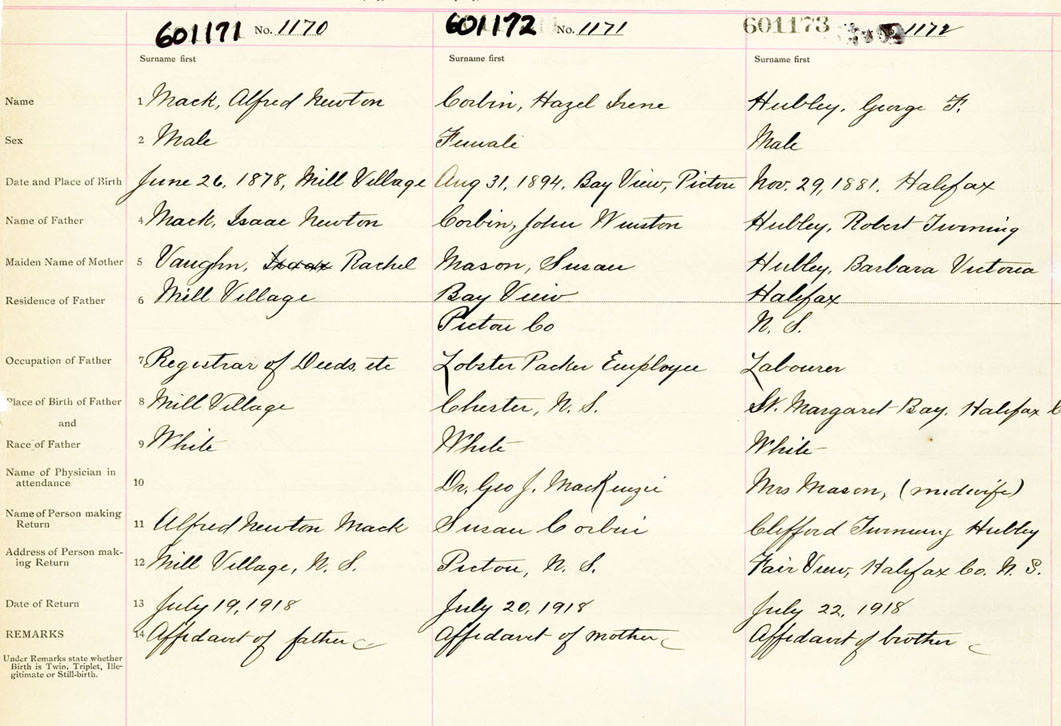 601171 No. 1170 601172 No. 1171 601173 1172
Surname first Surname first Surname first
Name 1 Mack, Alfred Newton Corbin, Hazel Irene Hubley, George F.
Sex 2 Male Female Male
Date and Place of Birth June 26, 1878, Mill Village Aug 31, 1894, Bay View, Pictou Nov. 29, 1881, Halifax
Name of Father 4 Mack, Isaac Newton Corbin, John Winston Hubley, Robert Twining
Maiden Name of Mother 5 Vaughn, Rachel Mason, Susan Hubley, Barbara Victoria
Residence of Father 6 Mill Village Bay View Halifax
Pictou Co N. S.
Occupation of Father 7 Registrar of Deeds, etc Lobster Packer Employee Labourer
Place of Birth of Father 8 Mill Village Chester, N. S. St. Margaret Bay, Halifax
and
Race of Father 9 White White White
Name of Physician in
attendance 10 Dr. Geo J. MacKenzie Mrs Mason, (midwife)
Name of Person making
Return 11 Alfred Newton Mack Susan Corbin Clifford Twining Hubley
Address of Person mak-
ing Return 12 Mill Village, N. S. Pictou, N. S. Fair View, Halifax Co. N. S.
Date of Return 13 July 19, 1918 July 20, 1918 July 22, 1918
REMARKS 14 Affidavit of father Affidavit of mother Affidavit of brother
Under Remarks state whether
Birth is Twin, Triplet, Ille-
gitimate or Still-birth.